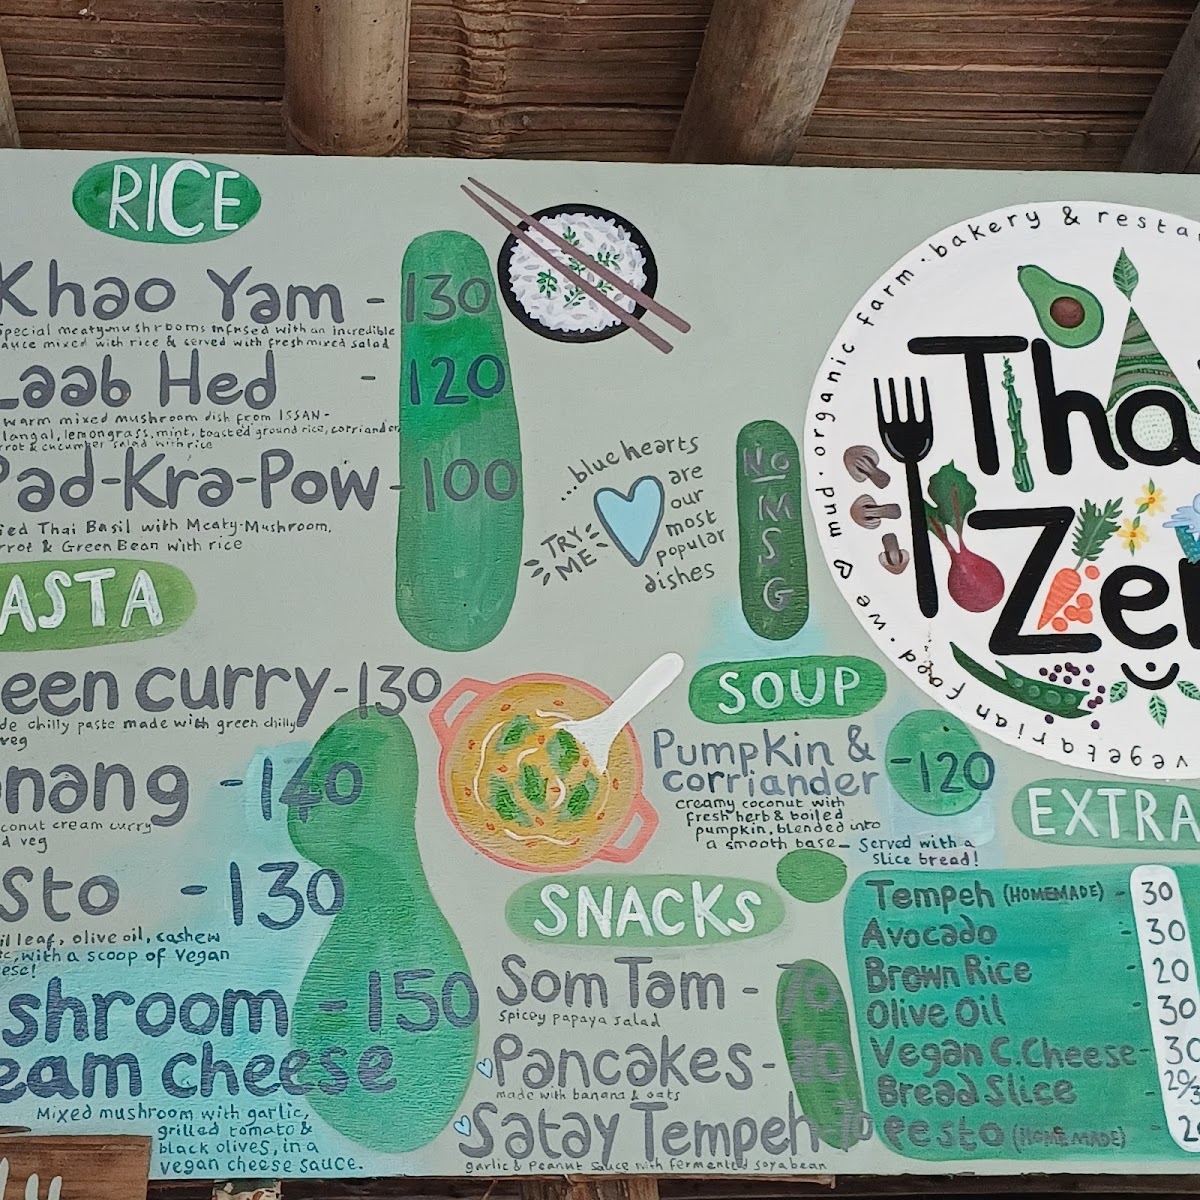 RICE
Khao Yam - 130
Special meaty mushrooms infused with an incredible
sauce mixed with rice & served with fresh mixed salad
Laab Hed - 120
warm mixed mushroom dish from ISSAN-
langal, lemongrass, mint, toasted ground rice, corriander
rrot & cucumber salad with rice
Pad-Kra-Pow - 100
ied Thai Basil with Meaty-Mushroom,
rrot & Green Bean with rice
...blue hearts
are
our
most
popular
dishes
TRY
ME
No
M
S
G
ASTA
een curry - 130
de chilly paste made with green chilly
veg
nang - 140
conut cream curry
d veg
sto - 130
il leaf, olive oil, cashew
tc, with a scoop of Vegan
eese!
shroom - 150
eam cheese
Mixed mushroom with garlic,
grilled tomato &
black olives, in a
vegan cheese sauce.
SOUP
Pumpkin &
corriander - 120
creamy coconut with
fresh herb & boiled
pumpkin, blended into
a smooth base - Served with a
slice bread!
SNACKS
Som Tam - 70
Spicey papaya salad
Pancakes - 80
made with banana & oats
Satay Tempeh 70
garlic & Peanut sauce with fermented soyabean
we mud · organic farm · bakery & resta
vegetarian food ·
Tha
Ze
EXTRA
Tempeh (HOMEMADE) - 30
Avocado - 30
Brown Rice - 20
Olive Oil - 30
Vegan C.Cheese - 30
Bread Slice - 20/3
Peesto (HOMEMADE) - 2